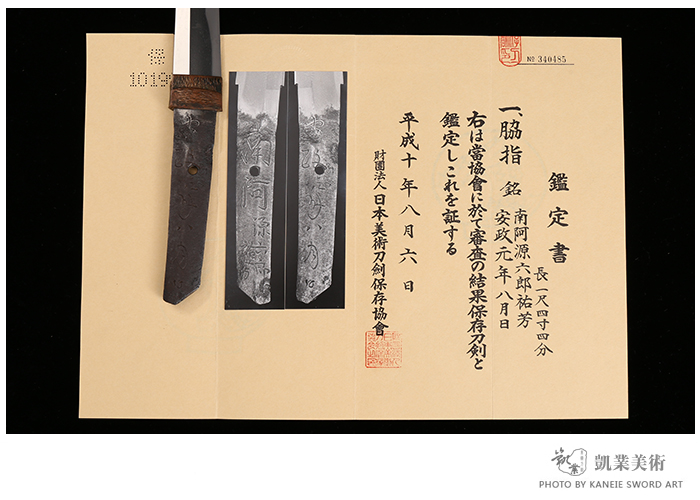 鑑定書
一、脇指 銘 南阿源六郎祐芳
安政元年八月日
長一尺四寸四分
右は當協會に於て審査の結果保存刀剣と
鑑定しこれを証する
平成十年八月六日
財團法人日本美術刀劍保存協會
№ 340485
保
1019
凱業美術
PHOTO BY KANEIE SWORD ART